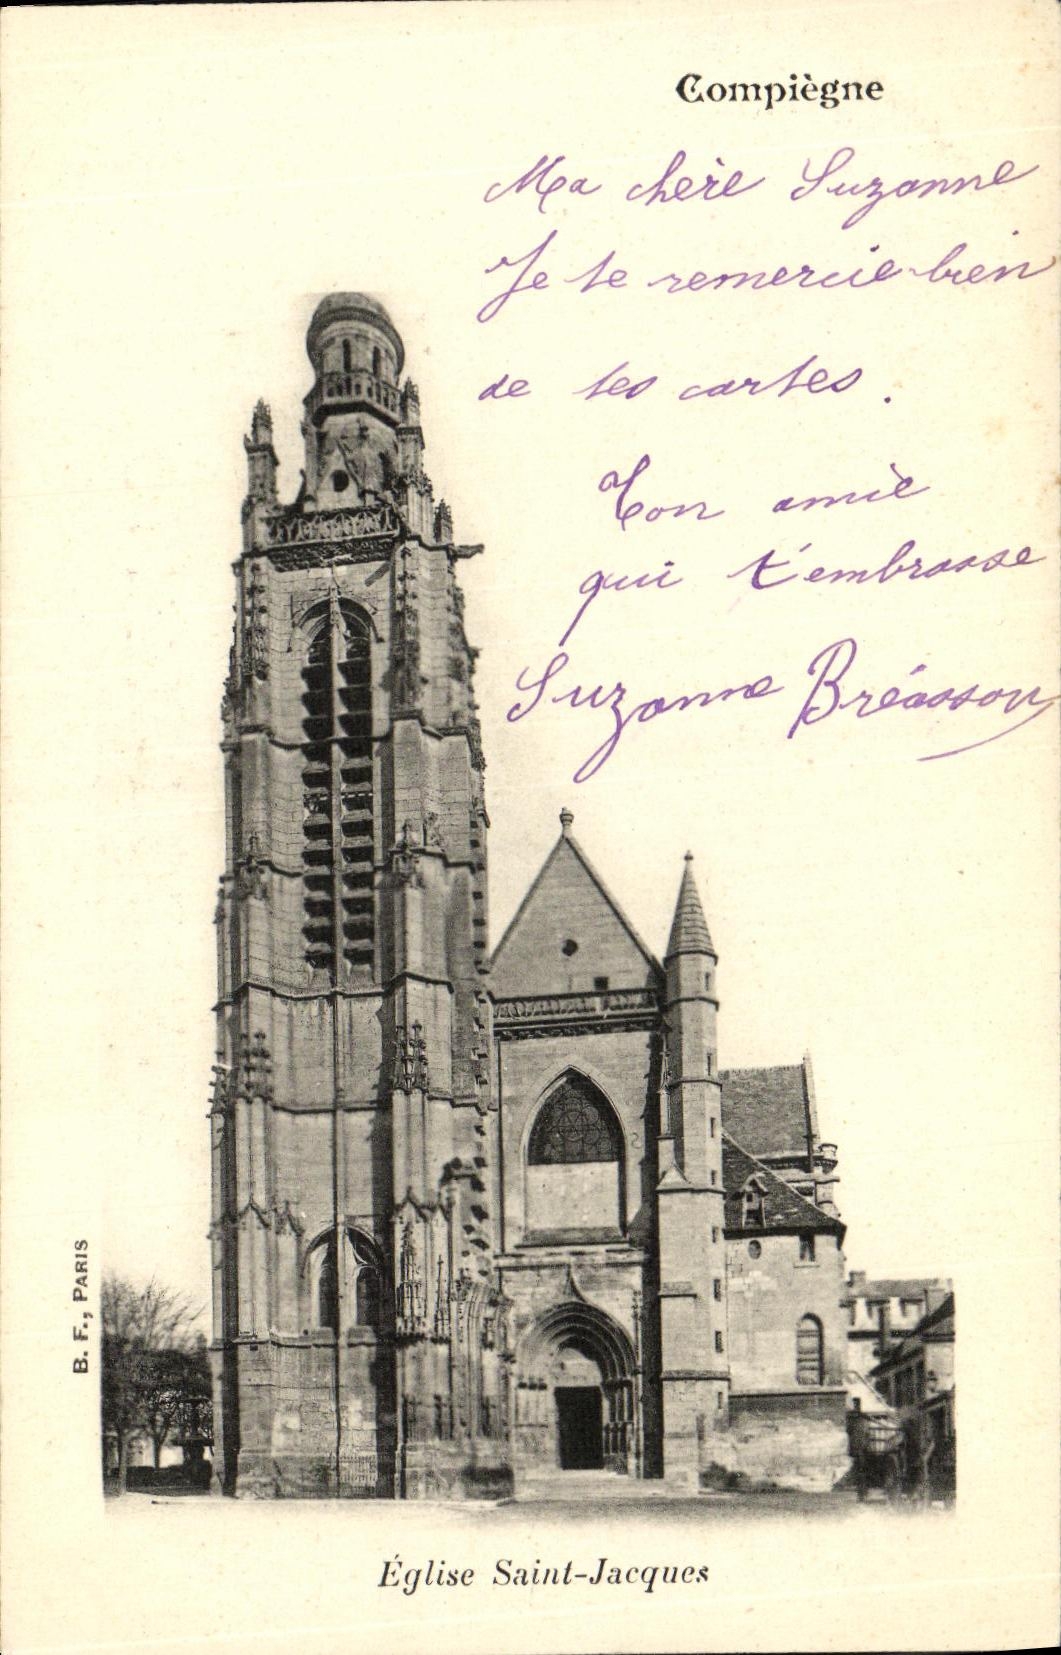 Compiègne
Ma chère Suzanne
Je te remercie bien
de tes cartes.
Ton amie
qui t'embrasse
Suzanne Bréasson
B. F., PARIS
Église Saint-Jacques